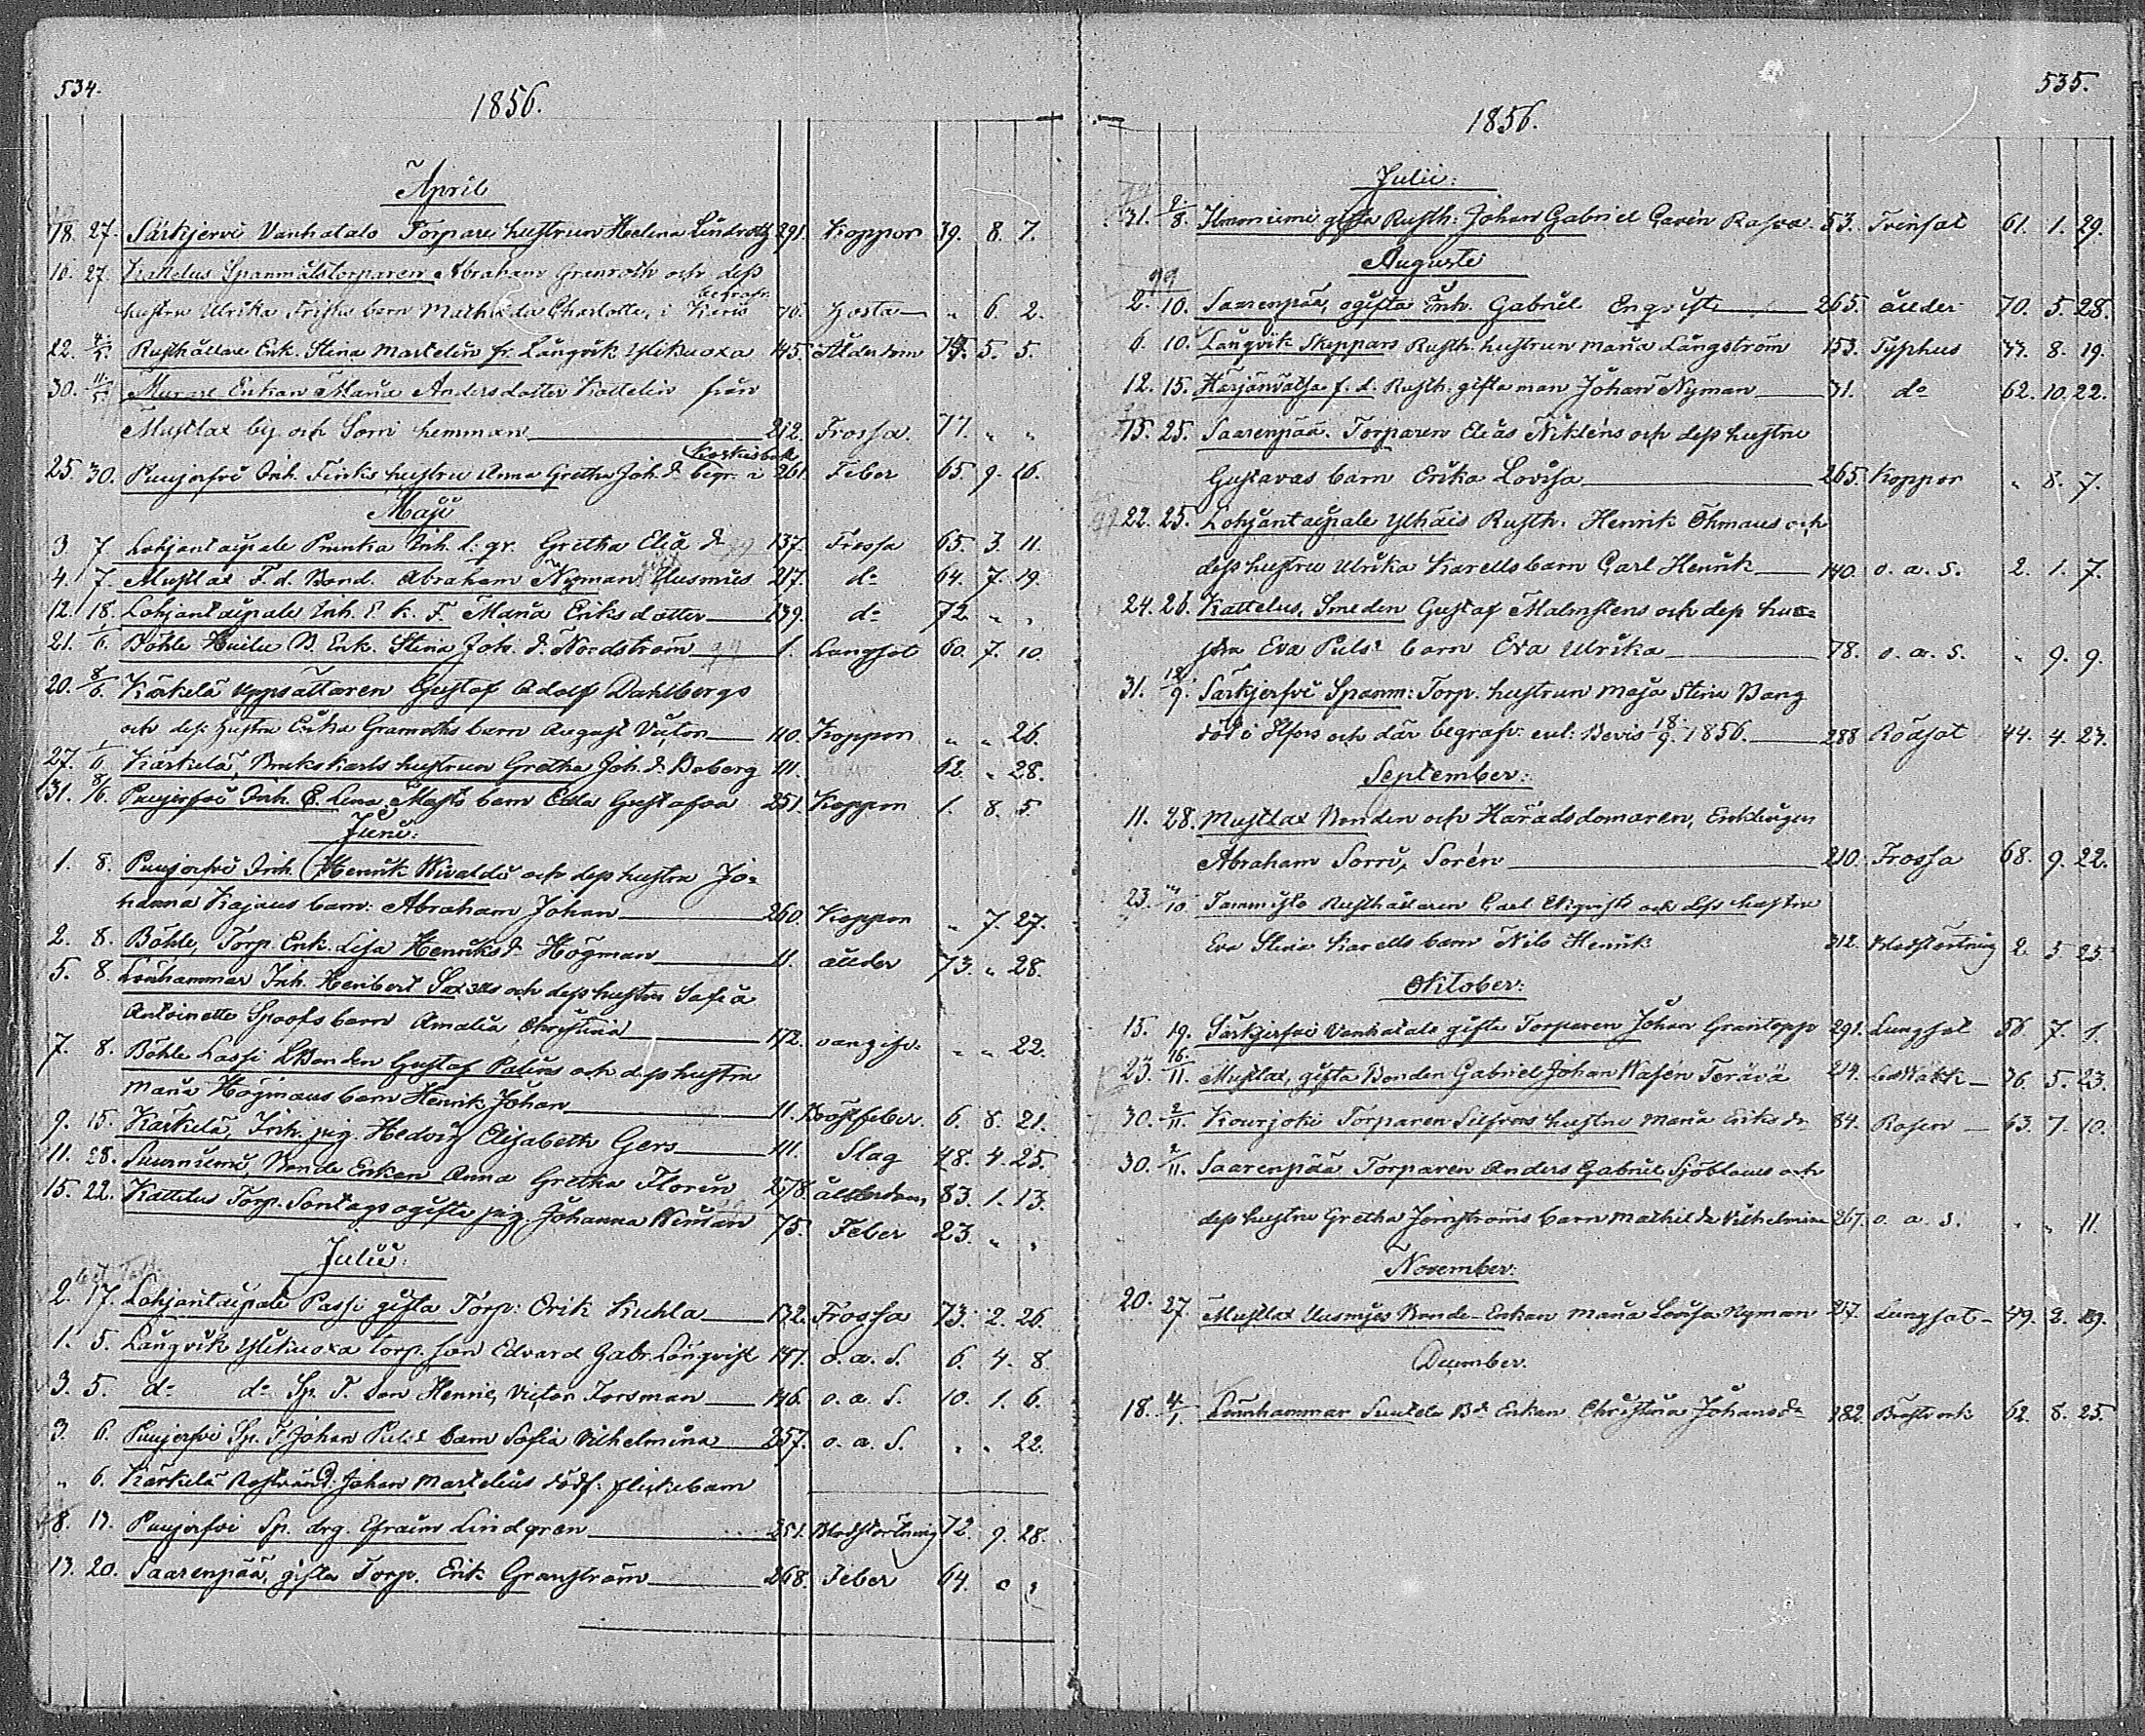 534.
1856.
April
18. 27. Särkjervi Vanhatalo Torpare hustrun Helena Lindroth 291. Koppor 39. 8. 7.
10. 27. Kattelus Spanmålstorparen Abraham Granroth och dess
begrafn.
hustru Ulrika barn Mathilda Charlotta, i Karis 76. Hosta " 6. 2.
22. 4/5. Rusthållare Enk. Stina Martelin fr. Långvik Ylikuoxa 145. Ålderdom 5. 5.
30. 11/5. Murare Enkan Maria Andersdotter Kattelin från
Mustlax by och Sorri hemman 212. Frossa. 77. " "
Koskisbacka
25. 30. Puujerfvi Inh. hustru Anna Gretha Joh. dr begr. i 261. Feber 65. 9. 16.
Maji
3. 7. Lohjantaipale Inh. Gretha Elia dr 137. Frossa 65. 3. 11.
4. 7. Mustlax F.d. Bond. Abraham Nyman Uusmies 217. do 64. 7. 19.
12. 18. Lohjantaipale Inh. E. k. F. Maria Eriksdotter 139. do 72. " "
21. 1/6. Böhle B. Enk. Stina Joh. dr Nordström 1. Lungsot 60. 7. 10.
20. 8/6. Kärkelä Uppsåttaren Gustaf Adolf Dahlbergs
och dess hustru Erika barn August Victor 110. Koppor " " 26.
27. 1/6. Kärkelä, Brukskarls hustrun Gretha Joh. dr Boberg 111. 62. " 28.
31. 8/6. Puujerfvi Inh. E. Lena barn Eva Gustafva 251. Koppor 1. 8. 5.
Junii:
1. 8. Puujerfvi Inh. Henrik Wivaldi och dess hustru Jo=
hanna Kajaus barn: Abraham Johan 260. Koppor " 7. 27.
2. 8. Böhle, Torp. Enk. Lisa Henriks dr Högman 11. ålder 73. " 28.
5. 8. Lönhammar Inh. Heribert och dess hustru Sofia
Antoinette Spoofs barn Amalia Christina 172. " " 22.
7. 8. Böhle Lassi Bonden Gustaf Palins och dess hustru
Maria Högmans barn Henrik Johan 11. Bröstfeber 6. 8. 21.
9. 15. Kärkelä, Inh. pig. Hedvig Elisabeth Gers 111. Slag 48. 4. 25.
11. 28. Suurniemi Bonde Enkan Anna Gretha Florin 278. ålderdom, 83. 1. 13.
15. 22. Kattelus Torp. Sontags ogifta pig. Johanna Wiman 75. Feber 23. " "
Julii:
2. 17. Lohjantaipale Passi gifta Torp: Erik Kuhla 132. Frossa 73. 2. 26.
1. 5. Långvik Ylikuoxa torp. son Edvard Gabr. Lönqvist 147. o. a. S. 6. 4. 8.
3. 5. do do Sp. T. son Henric Victor Forsman 146. o. a. S. 10. 1. 6.
3. 6. Puujerfvi Sp. T. Johan Puls barn Sofia Vilhelmina 257. o. a. S. " " 22.
" 6. Kärkelä Johan Martelius dödf: flickebarn
8. 13. Puujerfvi Sp. drg. Efraim Lindgren 251. Blodstörtning 72. 9. 28.
13. 20. Saarenpää, gifta Torp. Erik Granström 268. Feber 64. " "
535.
1856.
Julii:
31. 2/8. Ilmoniemi gifta Rusth: Johan Gabriel Carén 53. Tvinsot 61. 1. 29.
Augusti
2. 10. Saarenpää, ogifta Inh. Gabriel Enqvist 265. ålder 70. 5. 28.
6. 10. Långvik Skeppars Rusth. hustrun Maria Långström 153. Typhus 37. 8. 19.
12. 15. Harjanvatsa f. d. Rusth. gifta man Johan Nyman 31. do 62. 10. 22.
15. 25. Saarenpää. Torparen Elias Nikléns och dess hustru
Gustavas barn Erika Lovisa 265. Koppor " 8. 7.
22. 25. Lohjantaipale Ylhäis Rusth. Henrik Öhmans och
dess hustru Ulrika Karells barn Carl Henrik 140. o. a. S. 2. 1. 7.
24. 26. Kattelus, Smeden Gustaf Malmstens och dess hus=
Eva Puls: barn Eva Ulrika 78. o. a. S. " 9. 9.
31. 18/9. Särkjerfvi Spanm: Torp. hustrun Maja Stina Bang
död i Hfors och där begrafv. enl: Bevis 18/9. 1856. 288 Rödsot 44. 4. 27.
September:
11. 28. Mustlax Bonden och Häradsdomaren, Enklingen
Abraham Sorri, Sorén 210. Frossa 68. 9. 22.
23. /10. Tammisto Rusthållaren Carl Ekqvists och dess hustru
Eva Stina Karells barn Nils Henrik 312. Blodstörtning 2. 5. 25.
Oktober:
15. 19. Särkjerfvi Vanhatalo gifta Torparen Johan Grantopp 291. Lungsot 56. 7. 1.
23. 16/11. Mustlax, gifta Bonden Gabriel Johan Wafén Terävä 214. 36. 5. 23.
30. 2/11. Kourjoki Torparen Silfvers hustru Maria Eriks dr 84. Rosen 63. 7. 10.
30. 2/11. Saarenpää Torparen Anders Gabriel Sjöbloms och
dess hustru Gretha Jernströms barn Mathilda Vilhelmina 267. o. a. S. " " 11.
November:
20. 27. Mustlax Uusmies Bonde-Enkan Maria Lovisa Nyman 217. Lungsot 49. 2. 19.
December.
18. 4/1. Lönnhammar Bde Enkan Christina Johans dr 182. 62. 8. 25.